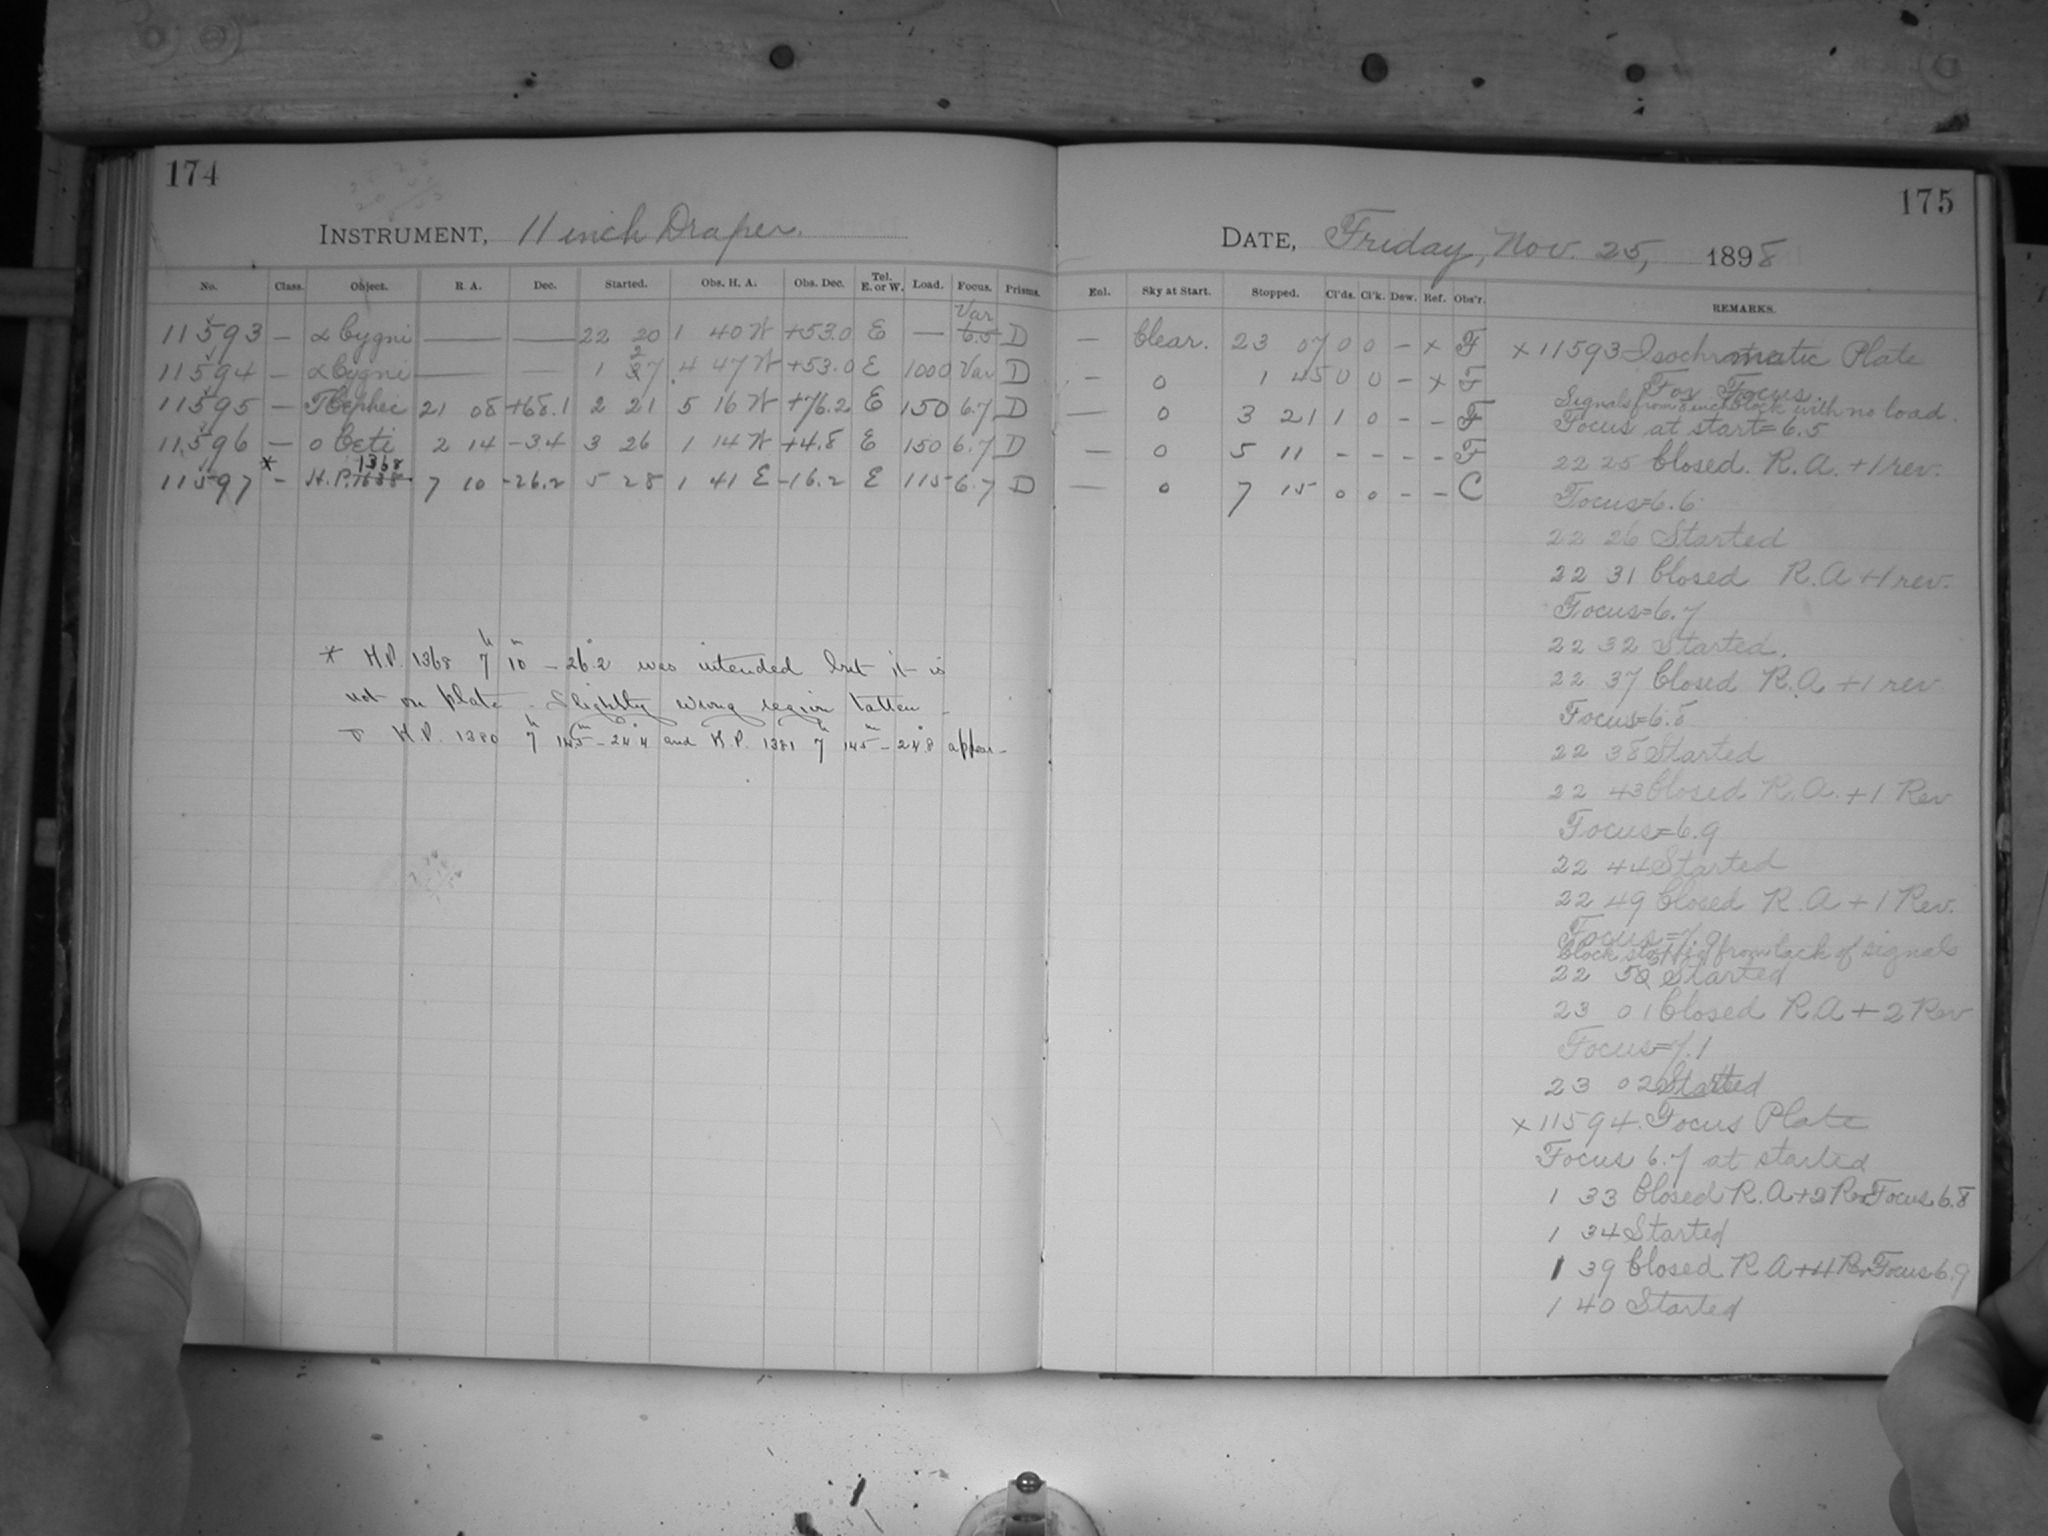 174
INSTRUMENT, 11 inch Draper.
No. Class. Object. R. A. Dec. Started. Obs. H. A. Obs. Dec. Tel. E. or W. Load. Focus. Prisms.
11593 — α Cygni — — 22 20 1 40 W +53.0 E — 6.5 Var D
11594 — α Cygni — — 1 27 4 47 W +53.0 E 1000 Var D
11595 — T Cephei 21 08 +68.1 2 21 5 16 W +76.2 E 150 6.7 D
11596 — o Ceti 2 14 -3.4 3 26 1 14 W +4.8 E 150 6.7 D
11597 * — H.P. 1638 1368 7 10 -26.2 5 28 1 41 E -16.2 E 115 6.7 D
* H.P. 1368 7h 10m -26.°2 was intended but it is
not on plate - Slightly wrong region taken -
H.P. 1380 7h 14.5m -24.°4 and H.P. 1381 7h 14.5m -24.°8 appear -
175
DATE, Friday, Nov. 25, 1898
Eol. Sky at Start. Stopped. Cl'ds. Cl'k. Dew. Ref. Obs'r. REMARKS.
— Clear. 23 07 0 0 - x F
— 0 1 45 0 0 - x F
— 0 3 21 1 0 - - F
— 0 5 11 - - - - F
— 0 7 15 0 0 - - C
x 11593 Isochromatic Plate
For Focus.
Signals from 8 inch Clock with no load.
Focus at start = 6.5
22 25 Closed. R.A. +1 rev.
Focus=6.6
22 26 Started
22 31 Closed R.A +1 rev.
Focus=6.7
22 32 Started.
22 37 Closed R.A +1 rev
Focus=6.8
22 38 Started
22 43 Closed R.A. +1 Rev
Focus=6.9
22 44 Started
22 49 Closed R.A +1 Rev.
Focus=7.0
Clock stopped from lack of signals
22 Started
23 01 Closed R A +2 Rev
Focus=7.1
23 02 Started
x 11594. Focus Plate
Focus 6.7 at started
1 33 Closed R.A +2 Rev Focus 6.8
1 34 Started
1 39 Closed R A +4 Rev Focus 6.9
1 40 Started